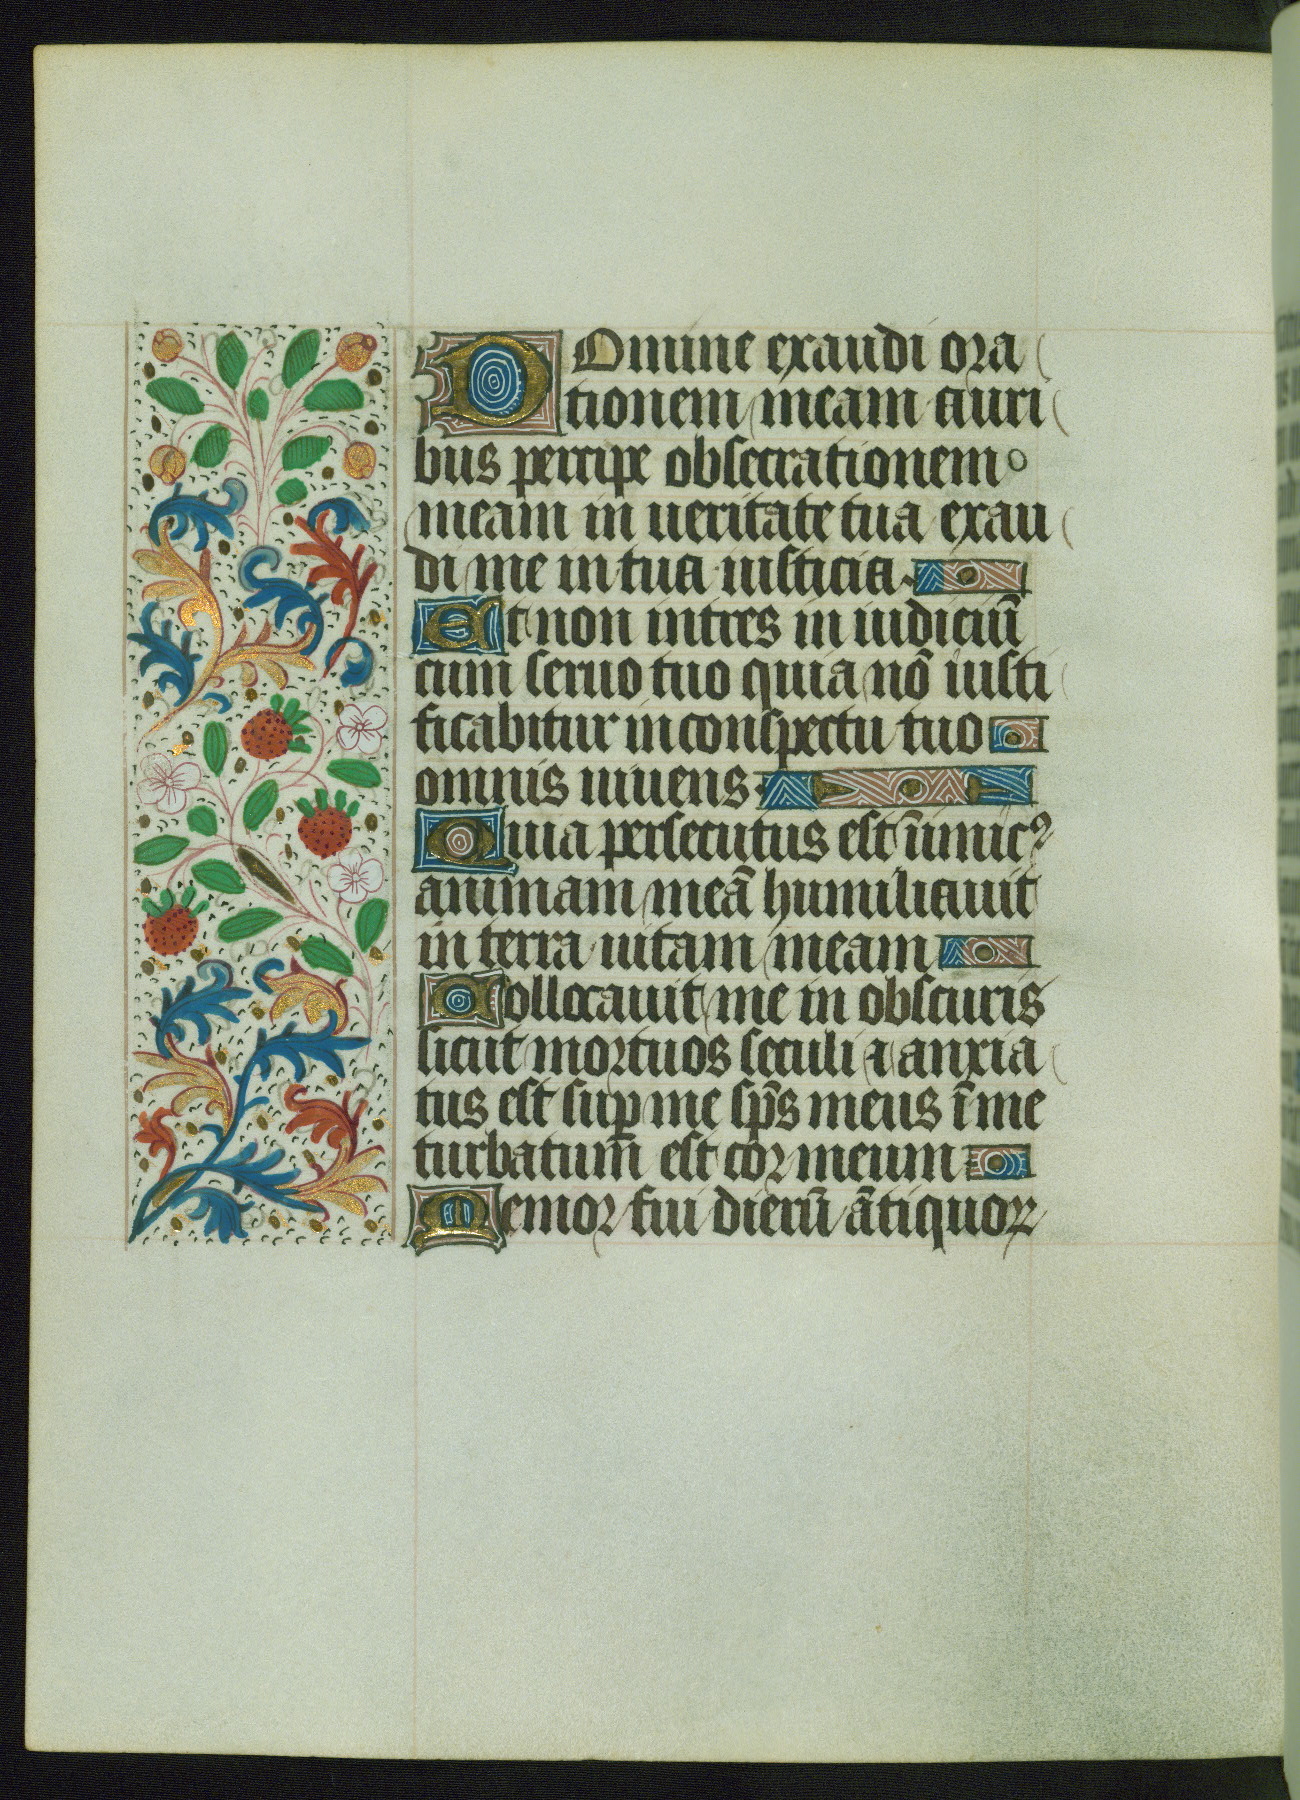 Domine exaudi ora
tionem meam auri
bus percipe obsecrationem
meam in ueritate tua exau
di me in tua iusticia
Et non intres in iudiciū
cum seruo tuo quia nō iusti
ficabitur in conspectu tuo
omnis uiuens
Quia persecutus est īimicꝰ
animam meā humiliauit
in terra uitam meam
Collocauit me in obscuris
sicut mortuos seculi ⁊ anxia
tus est suꝑ me sp̄s meus ī me
turbatum̄ est cor meum
Memor fui dierū ātiquoꝝ